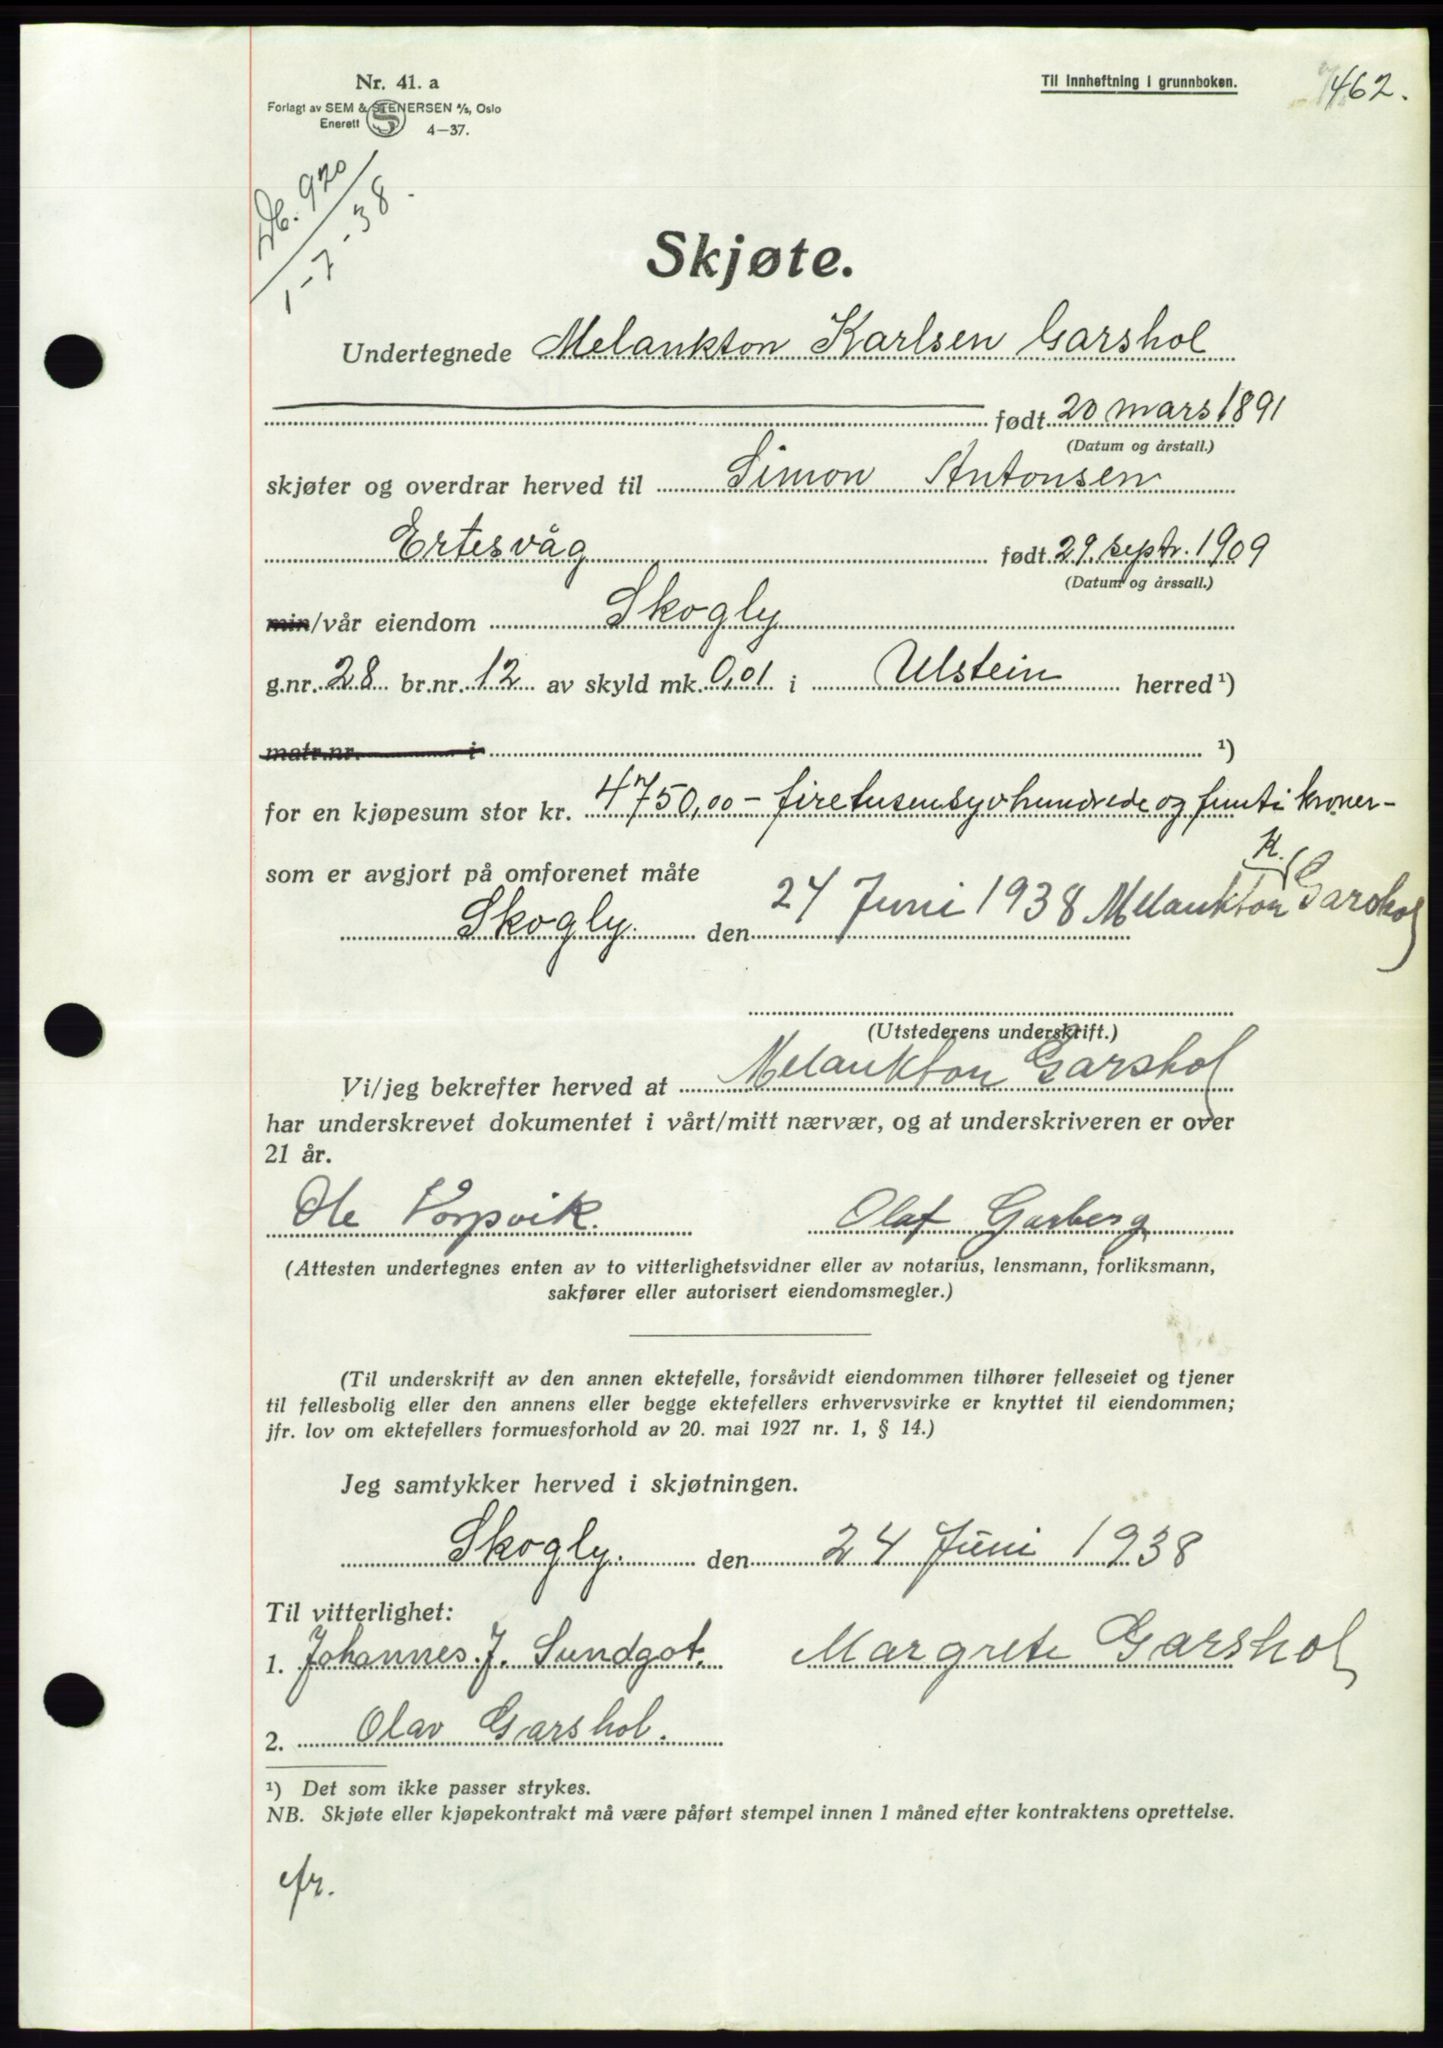 Nr. 41. a
Forlagt av SEM & STENERSEN A/S, Oslo
Enerett
4—37.
Til innheftning i grunnboken.
462.
Db. 920
1-7-38.
Skjøte.
Undertegnede Melankton Karlsen Garshol
født 20 mars 1891
(Datum og årstall.)
skjøter og overdrar herved til Simon Antonsen
Ertesvåg født 29. septr. 1909
(Datum og årssall.)
min/vår eiendom Skogly
g.nr. 28 br.nr. 12 av skyld mk. 0,01 i Ulstein herred¹)
matr.nr. i ¹)
for en kjøpesum stor kr. 4750,00 — firetusensyvhundrede og femti kroner—
som er avgjort på omforenet måte
Skogly. den 24 Juni 1938 Melankton K. Garshol
(Utstederens underskrift.)
Vi/jeg bekrefter herved at Melankton Garshol
har underskrevet dokumentet i vårt/mitt nærvær, og at underskriveren er over
21 år.
Ole Vorpvik. Olaf Garberg
(Attesten undertegnes enten av to vitterlighetsvidner eller av notarius, lensmann, forliksmann,
sakfører eller autorisert eiendomsmegler.)
(Til underskrift av den annen ektefelle, forsåvidt eiendommen tilhører felleseiet og tjener
til fellesbolig eller den annens eller begge ektefellers erhvervsvirke er knyttet til eiendommen;
jfr. lov om ektefellers formuesforhold av 20. mai 1927 nr. 1, § 14.)
Jeg samtykker herved i skjøtningen.
Skogly. den 24 Juni 1938
Til vitterlighet:
1. Johannes J. Sundgot. Margrete Garshol
2. Olav Garshol.
¹) Det som ikke passer strykes.
NB. Skjøte eller kjøpekontrakt må være påført stempel innen 1 måned efter kontraktens oprettelse.